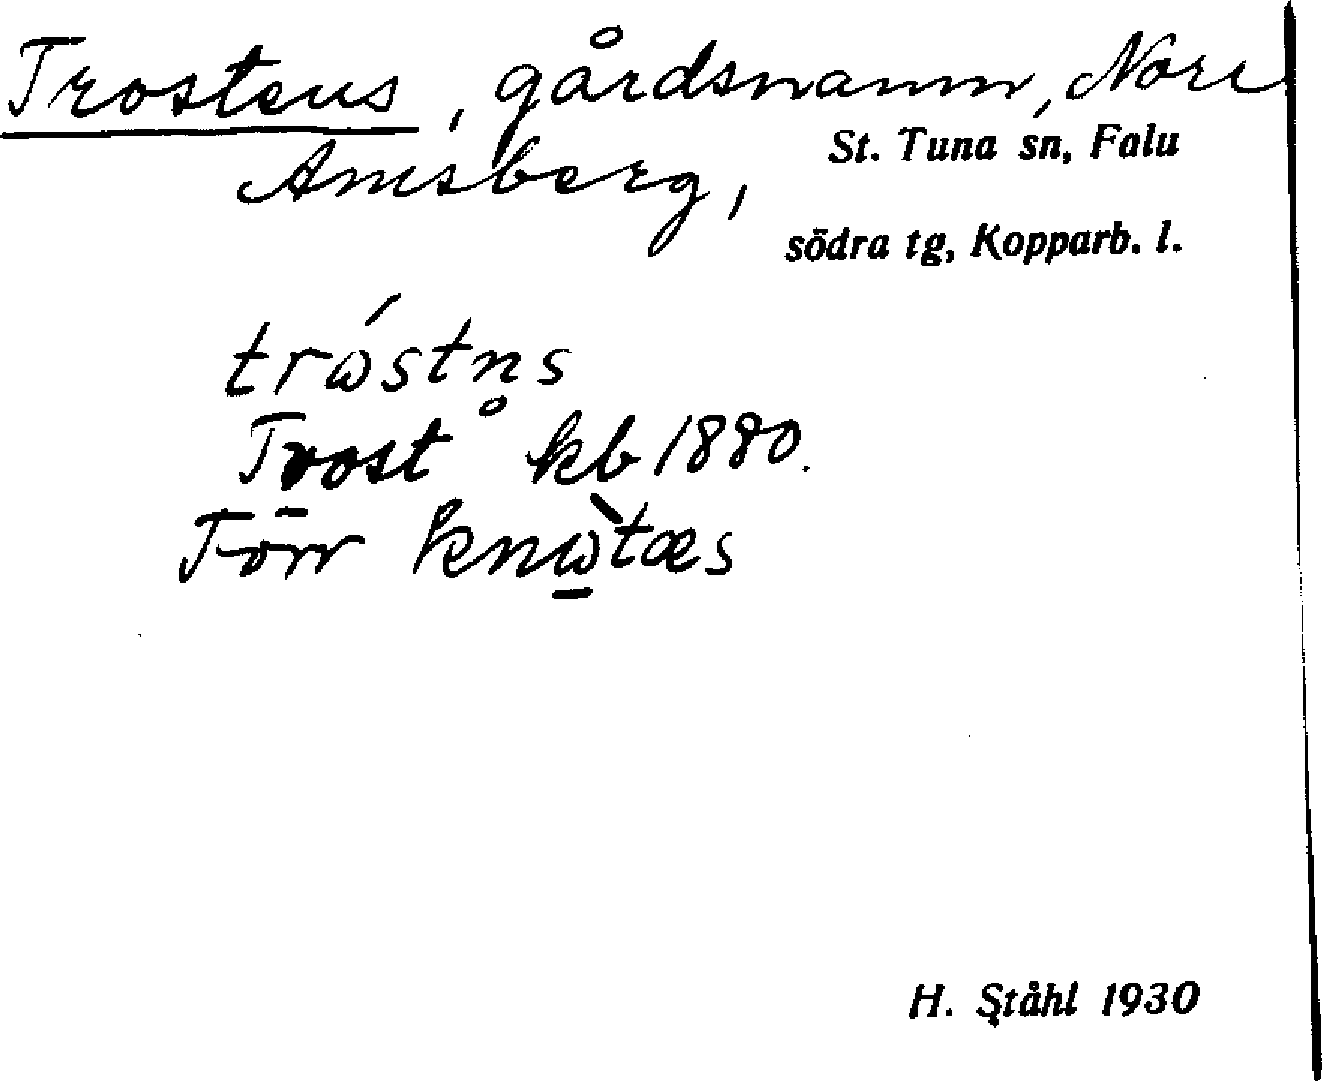 Trostens, gårdsnamn, Norr
Amsberg,
St. Tuna sn, Falu
södra tg, Kopparb. l.
trώstn̥s
Trost kb 1880.
Förr knὼ̱tæs
H. Ståhl 1930